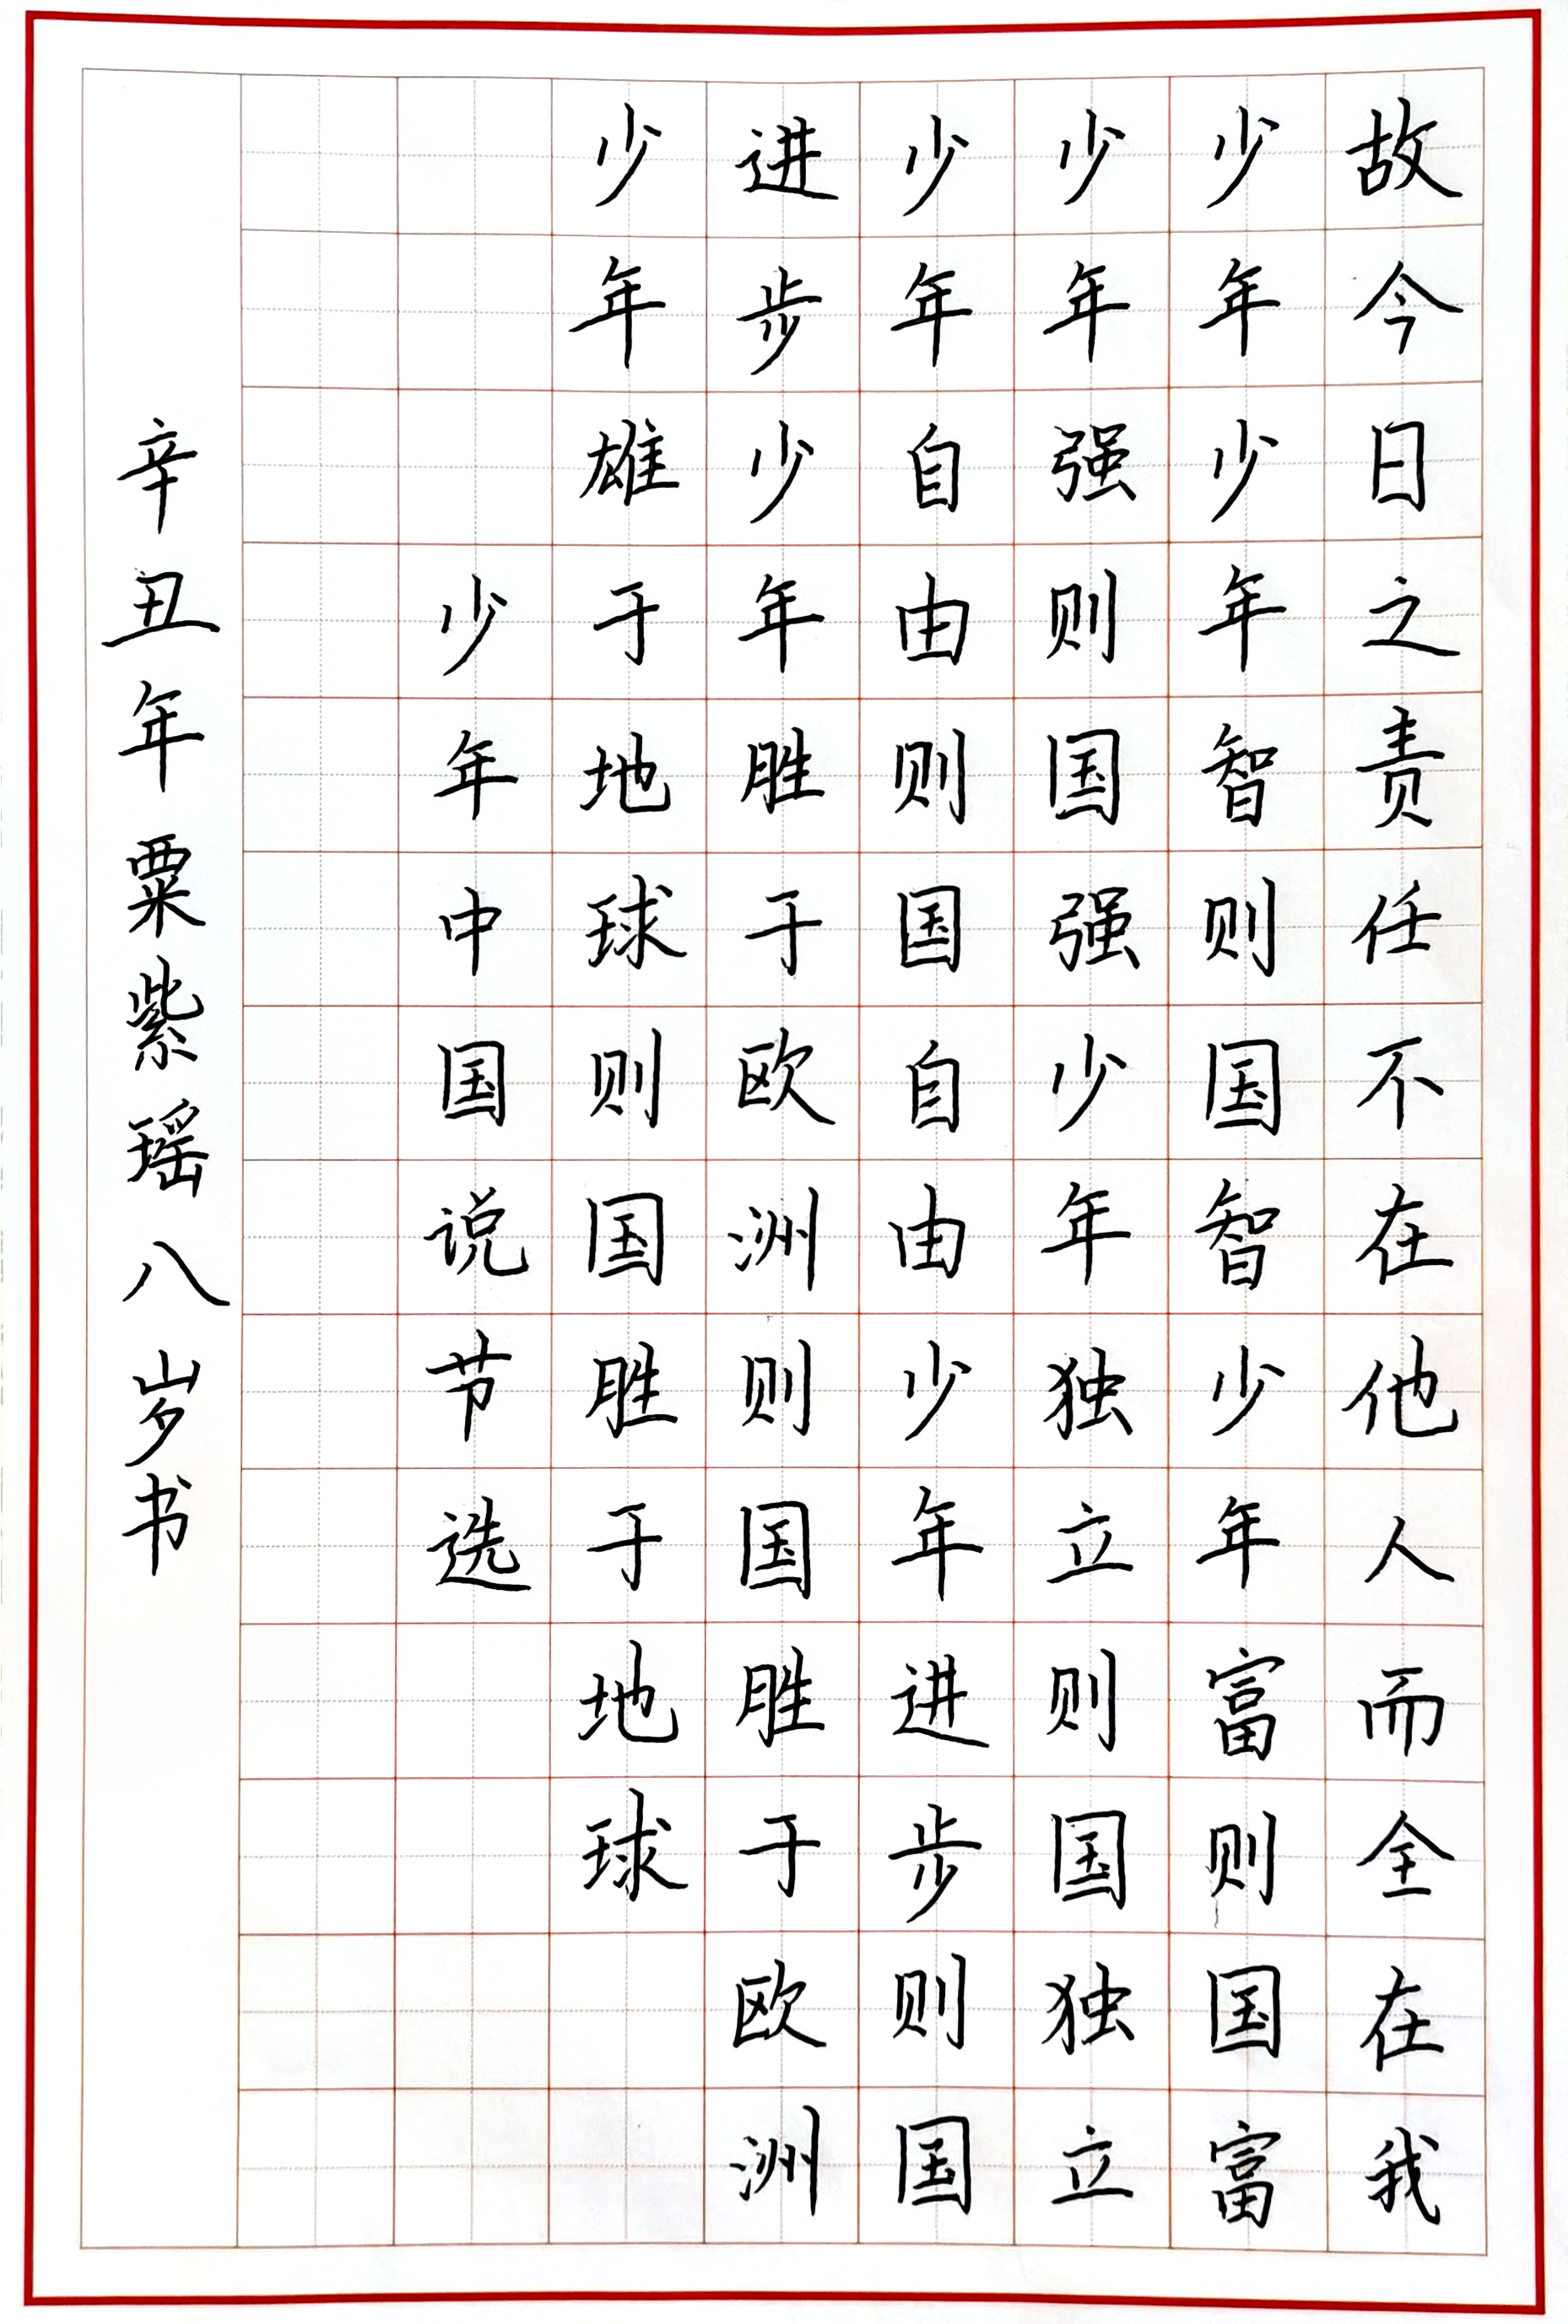 故今日之责任不在他人而全在我
少年少年智则国智少年富则国富
少年强则国强少年独立则国独立
少年自由则国自由少年进步则国
进步少年胜于欧洲则国胜于欧洲
少年雄于地球则国胜于地球
少年中国说节选
辛丑年粟紫瑶八岁书